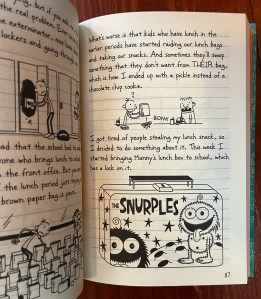 ying. But if you ask
the real problem. Ever
exterminator, our
lockers and going th
ad that the school had to
one who brings lunch to
in the front office. But
the lunch period just
brown paper bag is
What's worse is that kids who have lunch in the
earlier periods have started raiding our lunch bags
and taking our snacks. And sometimes they'll swap
something that they don't want from THEIR bag,
which is how I ended up with a pickle instead of a
chocolate chip cookie.
BOINK
I got tired of people stealing my lunch snack, so
I decided to do something about it. This week I
started bringing Manny's lunch box to school, which
has a lock on it.
THE
SNURPLES
117